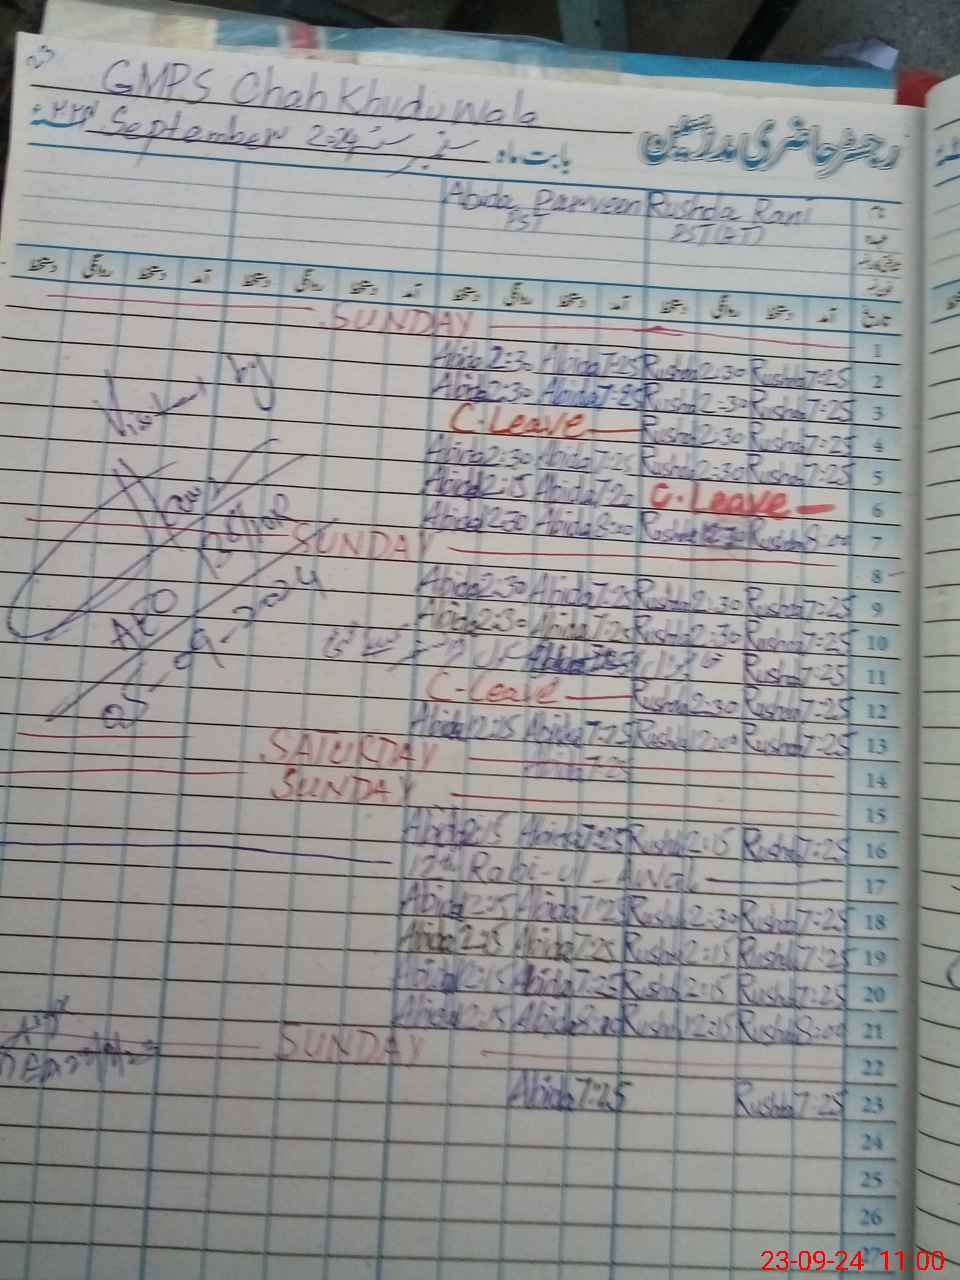 GMPS Chah Khuduwala
رجسٹر حاضری مدرسین
بابت ماه ستمبر September 2024
Abida Parveen Rushda Rani
PST PST
نام
عہدہ
دستخط روانگی دستخط آمد دستخط روانگی دستخط آمد دستخط روانگی دستخط آمد دستخط روانگی دستخط آمد تاریخ
SUNDAY 1
Abida 2:30 Abida 7:25 Rushda 2:30 Rushda 7:25 2
Abida 2:30 Abida 7:25 Rushda 2:30 Rushda 7:25 3
C.Leave Rushda 2:30 Rushda 7:25 4
Abida 2:30 Abida 7:25 Rushda 2:30 Rushda 7:25 5
Abida 12:15 Abida 7:20 C.Leave 6
Abida 12:30 Abida 8:00 Rushda Rushda 8:00 7
SUNDAY 8
Abida 2:30 Abida 7:25 Rushda 2:30 Rushda 7:25 9
Abida 2:30 Abida 7:25 Rushda 2:30 Rushda 7:25 10
Rushda 7:25 11
C-Leave Rushda 2:30 Rushda 7:25 12
Abida 12:15 Abida 7:25 Rushda 12:00 Rushda 7:25 13
SATURDAY Abida 7:25 14
SUNDAY 15
Abida 2:15 Abida 7:25 Rushda 2:15 Rushda 7:25 16
12th Rabi-ul-Awal 17
Abida 2:15 Abida 7:25 Rushda 2:30 Rushda 7:25 18
Abida 2:15 Abida 7:25 Rushda 2:15 Rushda 7:25 19
Abida 12:15 Abida 7:25 Rushda 12:15 Rushda 7:25 20
Abida 12:15 Abida 8:00 Rushda 12:15 Rushda 8:00 21
SUNDAY 22
Abida 7:25 Rushda 7:25 23
24
25
26
27
Visited by
AEO
05-09-2024
23-09-24 11:00